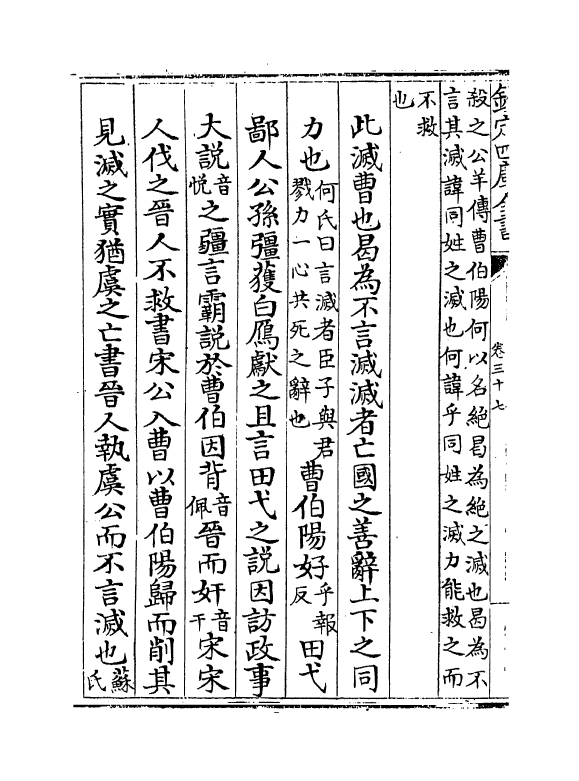 欽定四庫全書
卷三十七
殺之公羊傳曹伯陽何以名絶曷為絶之滅也曷為不
言其滅諱同姓之滅也何諱乎同姓之滅力能救之而
不救
也
此滅曹也曷為不言滅滅者亡國之善辭上下之同
力也何氏曰言滅者臣子與君戮力一心共死之辭也曹伯陽好乎報反田弋
鄙人公孫彊獲白鴈獻之且言田弋之說因訪政事
大說音悅之疆言霸說於曹伯因背音佩晉而奸音干宋宋
人伐之晉人不救書宋公入曹以曹伯陽歸而削其
見滅之實猶虞之亡書晉人執虞公而不言滅也蘇氏